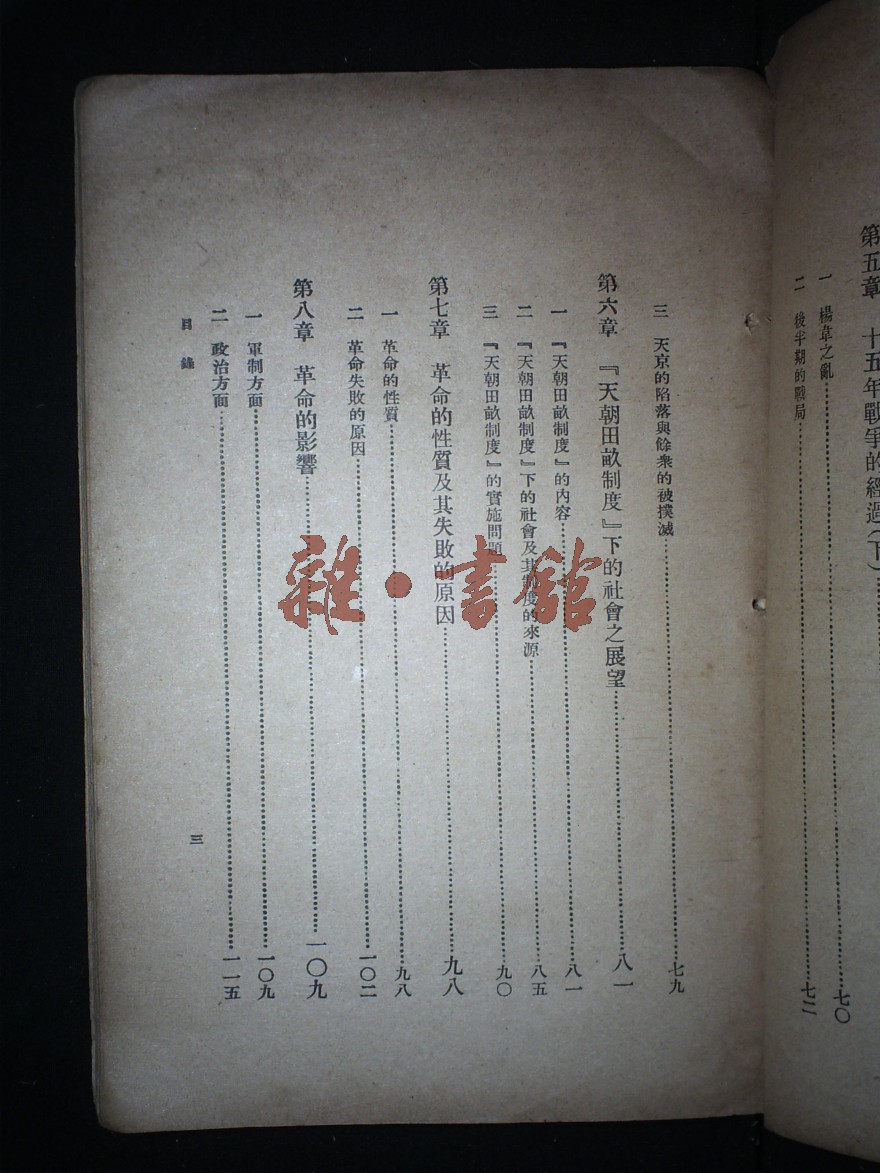 第五章　十五年戰爭的經過（下）
一　楊韋之亂……七〇
二　後半期的戰局……七二
三　天京的陷落與餘衆的被撲滅……七九
第六章　『天朝田畝制度』下的社會之展望……八一
一　『天朝田畝制度』的內容……八一
二　『天朝田畝制度』下的社會及其制度的來源……八五
三　『天朝田畝制度』的實施問題……九〇
第七章　革命的性質及其失敗的原因……九八
一　革命的性質……九八
二　革命失敗的原因……一〇二
第八章　革命的影響……一〇九
一　軍制方面……一〇九
二　政治方面……一一五
目錄
三
雜·書館